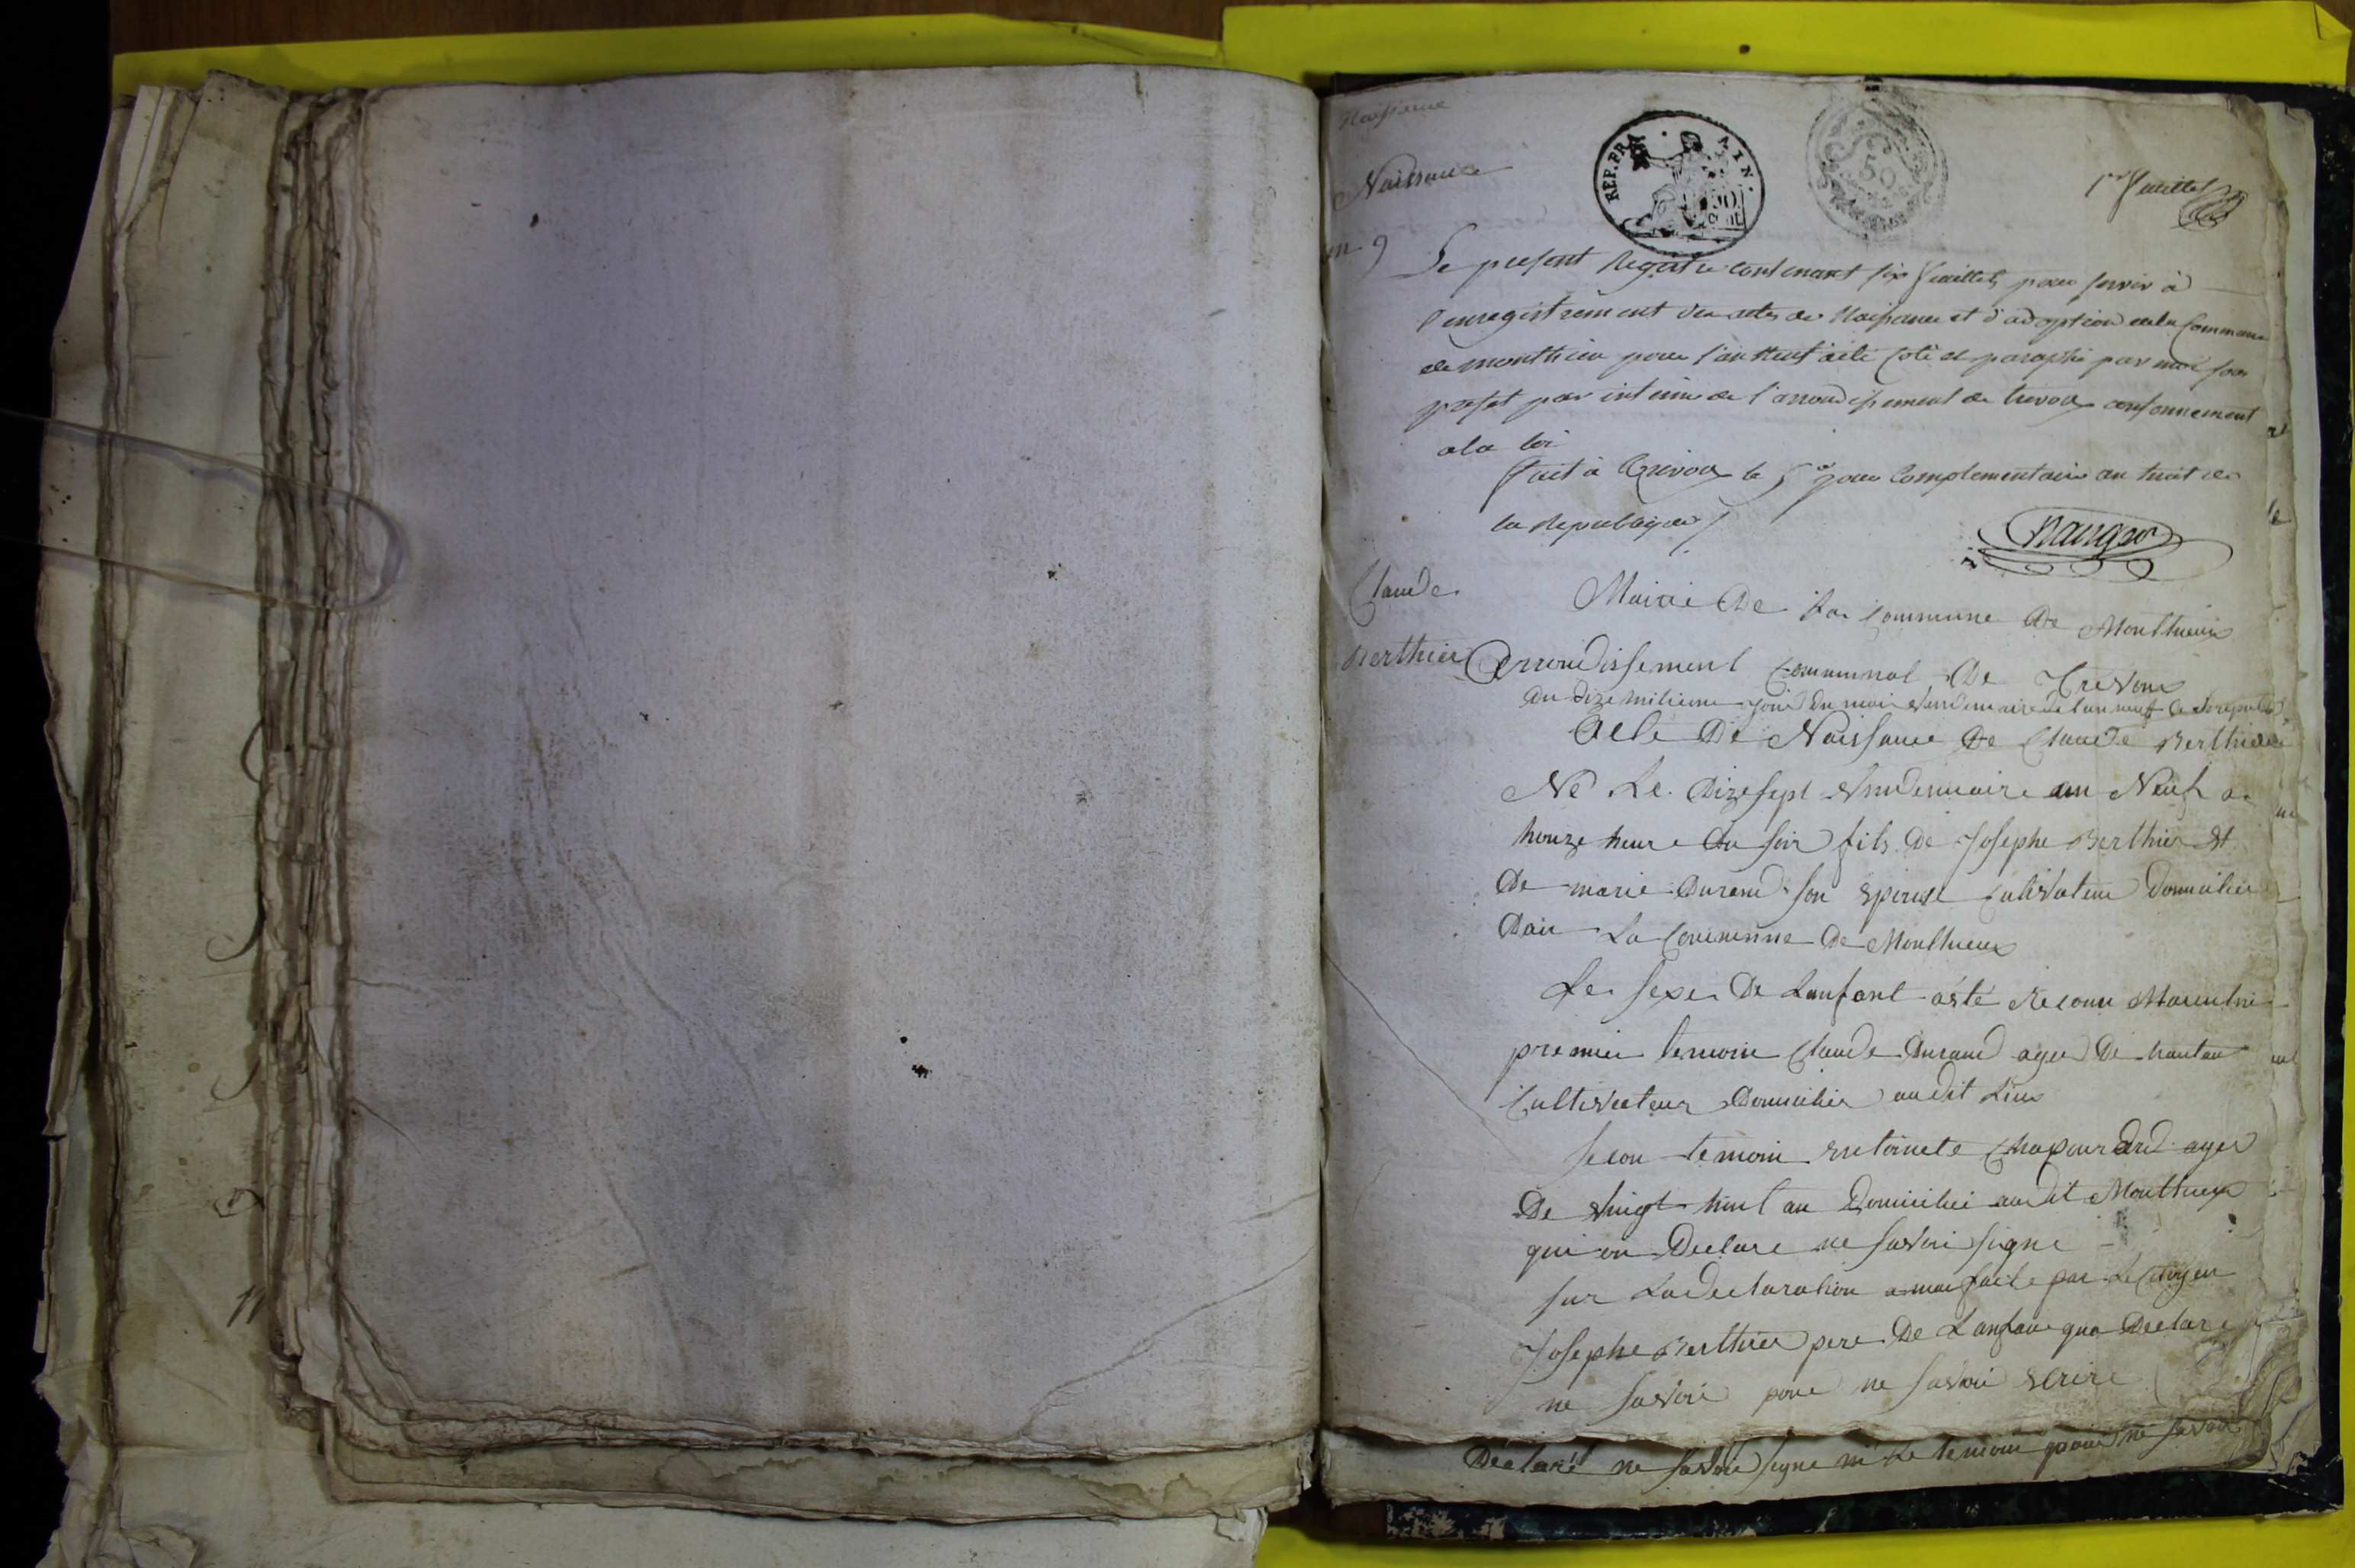 Naissance
Naissance
REP. FRA . AIN .
50
cent
50
1er feuillet
an 9
Le present Registre contenant six feuillets pour servir à
l'enregistrement des actes de Naissance et d'adoption de la Commune
de monthieu pour l'an neuf a été coté et paraphé par moi sous
prefet par interim de l'arrondissement de trevoux conformement
a la loi
fait à Trevoux le 5e jour Complementaire an huit de
la Republique
Claude
Berthier
Mairie De La Commune De Monthieux
Arrondissement Communal De Trevoux
Du dize huitieme jour Du mois Vendemiaire de lan neuf de
Acte De Naissance De Claude Berthier
Né Le Dizesept Vendemiaire an Neuf a
honze heure Du soir fils De Josephe Berthier et
De marie Durand son epouse Cultivateur Domicilier
Dan La Commune De Monthieux
Le sexe De Lanfant a été Reconu Masculin
premier temoin Claude Durand agee De
Cultivateur Domicilier audit Lieu
Secon temoin entoinete agee
De Vingt huit an Domicilié audit Monthieux
qui on Declare ne savoir signe
sur La declaration a moi faite par Le Citoyen
Josephe Berthier pere De Lanfan qua Declare
ne savoir pour ne savoir ecrire
Déclaré ne savoir signe ni Le temoin pour ne savoir